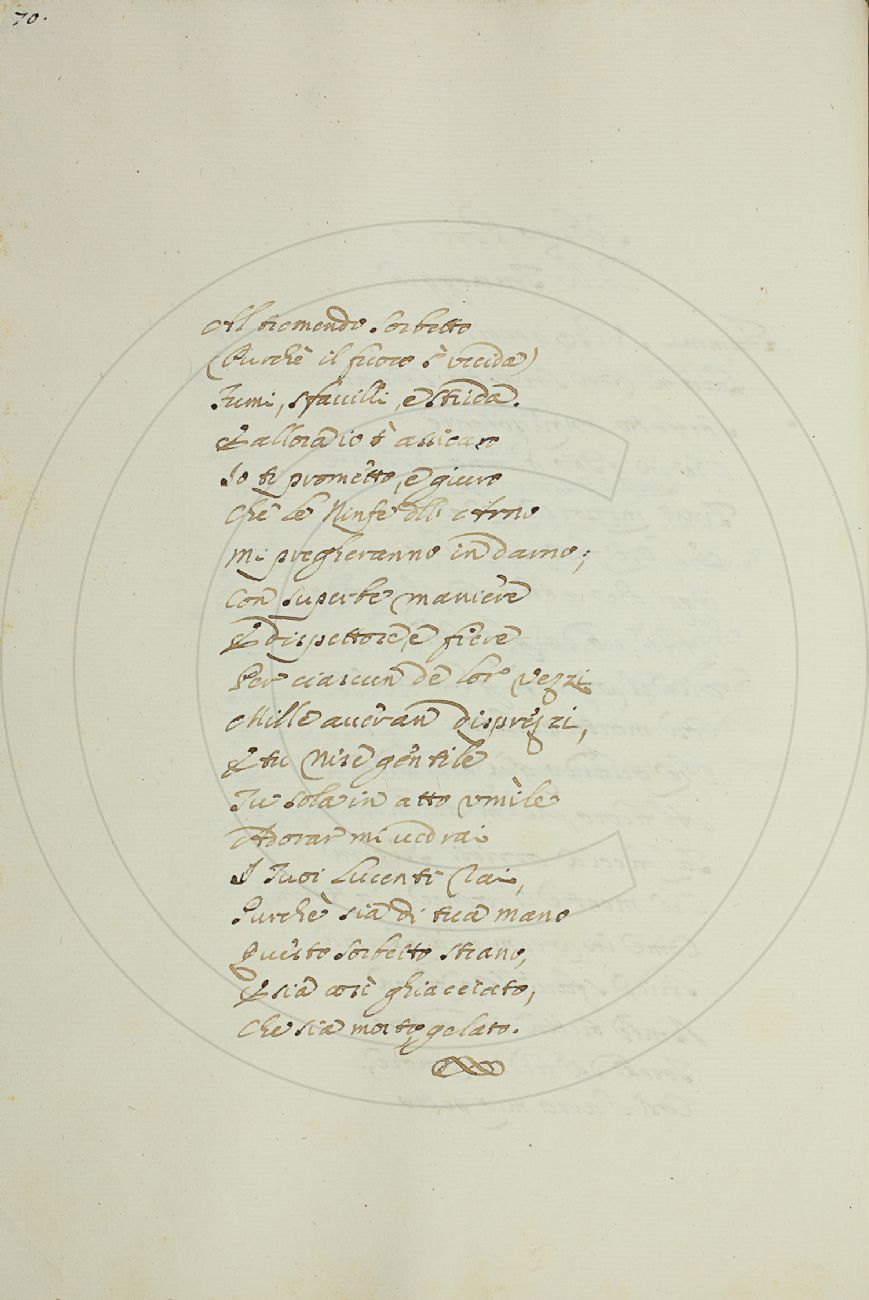 70.
Al tremendo sorbetto
(Purchè il fuoco s' uccida)
Fumi, sfavilli, e strida.
E allora io t' assicuro
Io ti prometto, e giuro
Che le Ninfe dell' Arno
Mi pregheranno in darno;
Con superbe maniere
E dispettose, e fiere
Per ciascun de lor vezzi
Mille averan disprezzi,
E tu Nise gentile
Tu sola in atto umile
Adorar mi vedrai
I Tuoi Lucenti rai,
Purchè sia di tua mano
Questo sorbetto strano,
E sia così ghiacciato,
Che sia morto gelato.